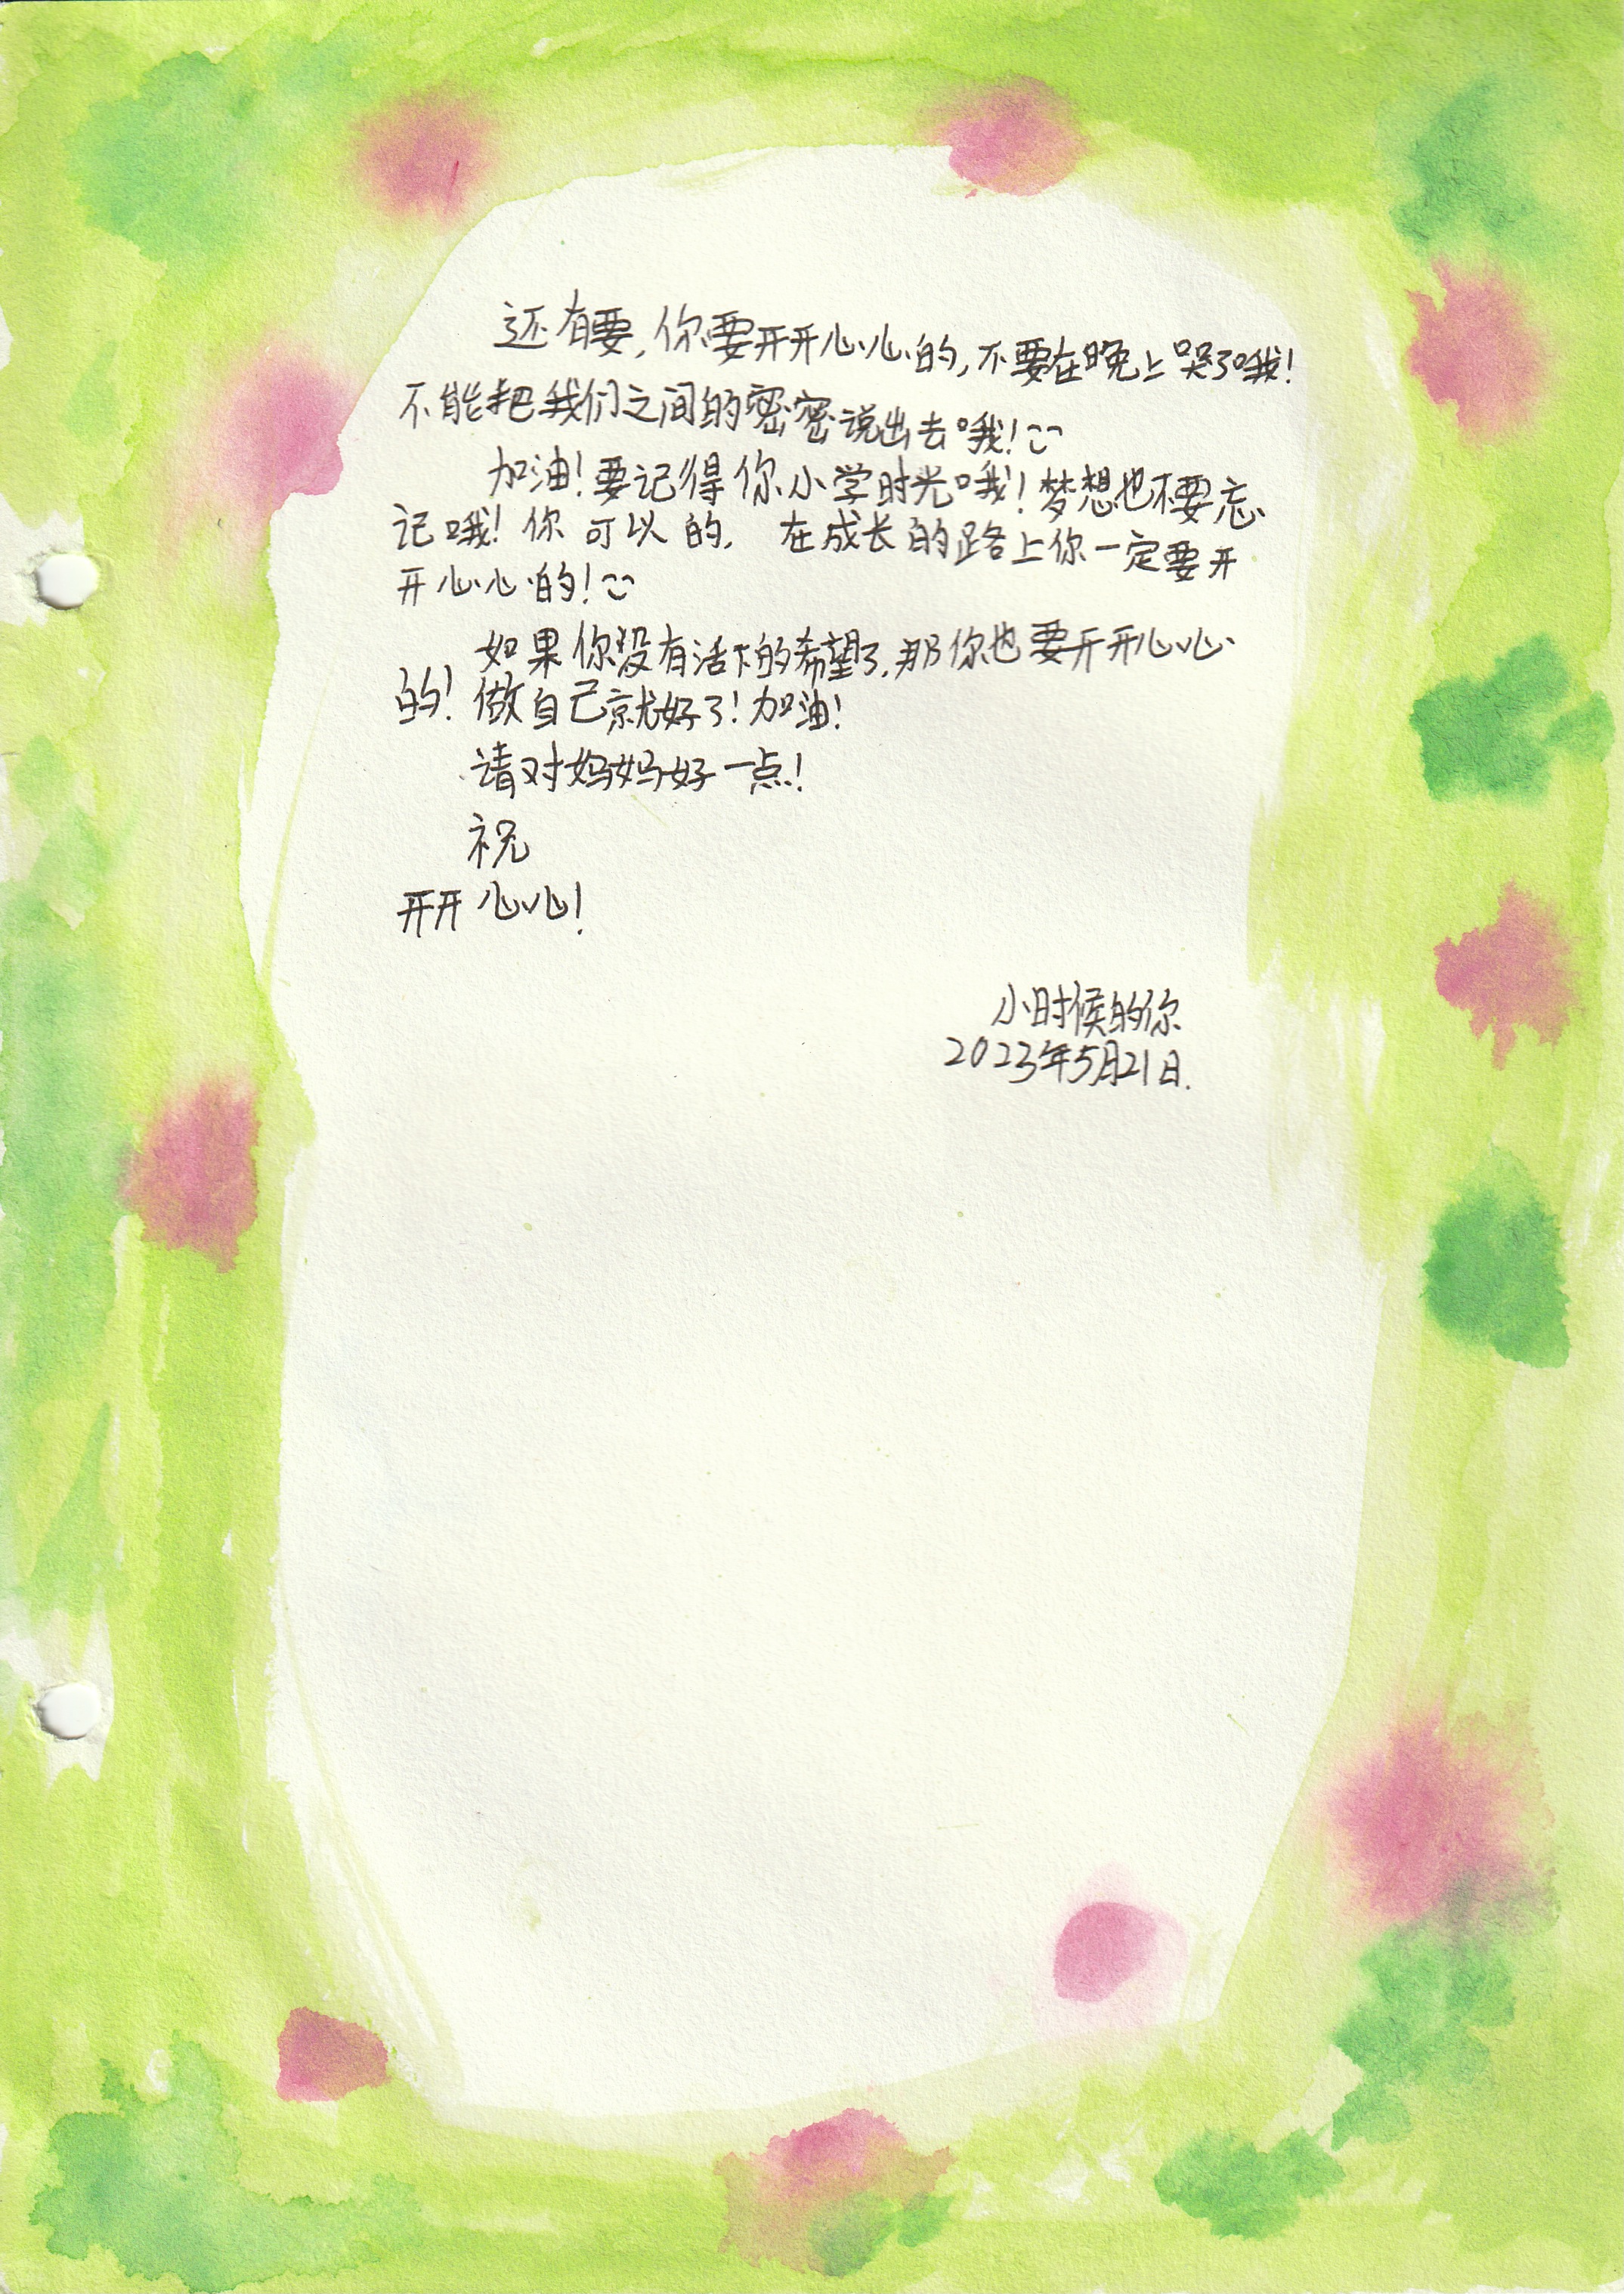 还有要,你要开开心心的,不要在晚上哭了哦!
不能把我们之间的密密说出去哦!
加油!要记得你小学时光哦!梦想也不要忘
记哦!你可以的,在成长的路上你一定要开
开心心的!
如果你没有活下的希望了,那你也要开开心心
的!做自己就好了!加油!
请对妈妈好一点!
祝
开开心心!
小时候的你
2023年5月21日.